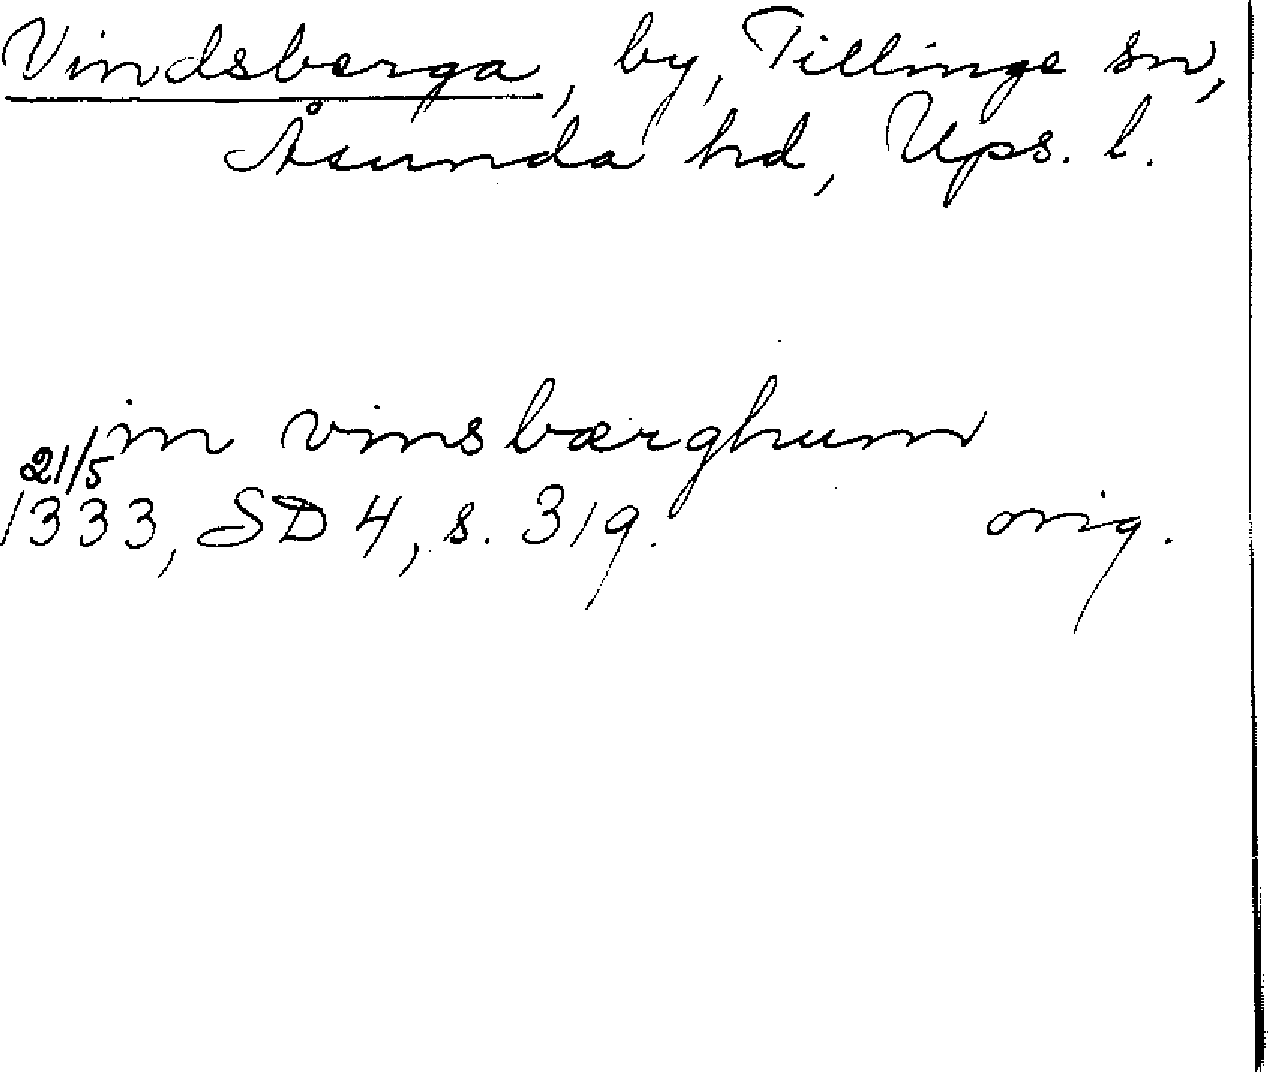 Vindsberga, by, Tillinge sn,
Åsunda hd, Ups. l.
in vinsbærghum
21/5
1333, SD 4, s. 319. orig.